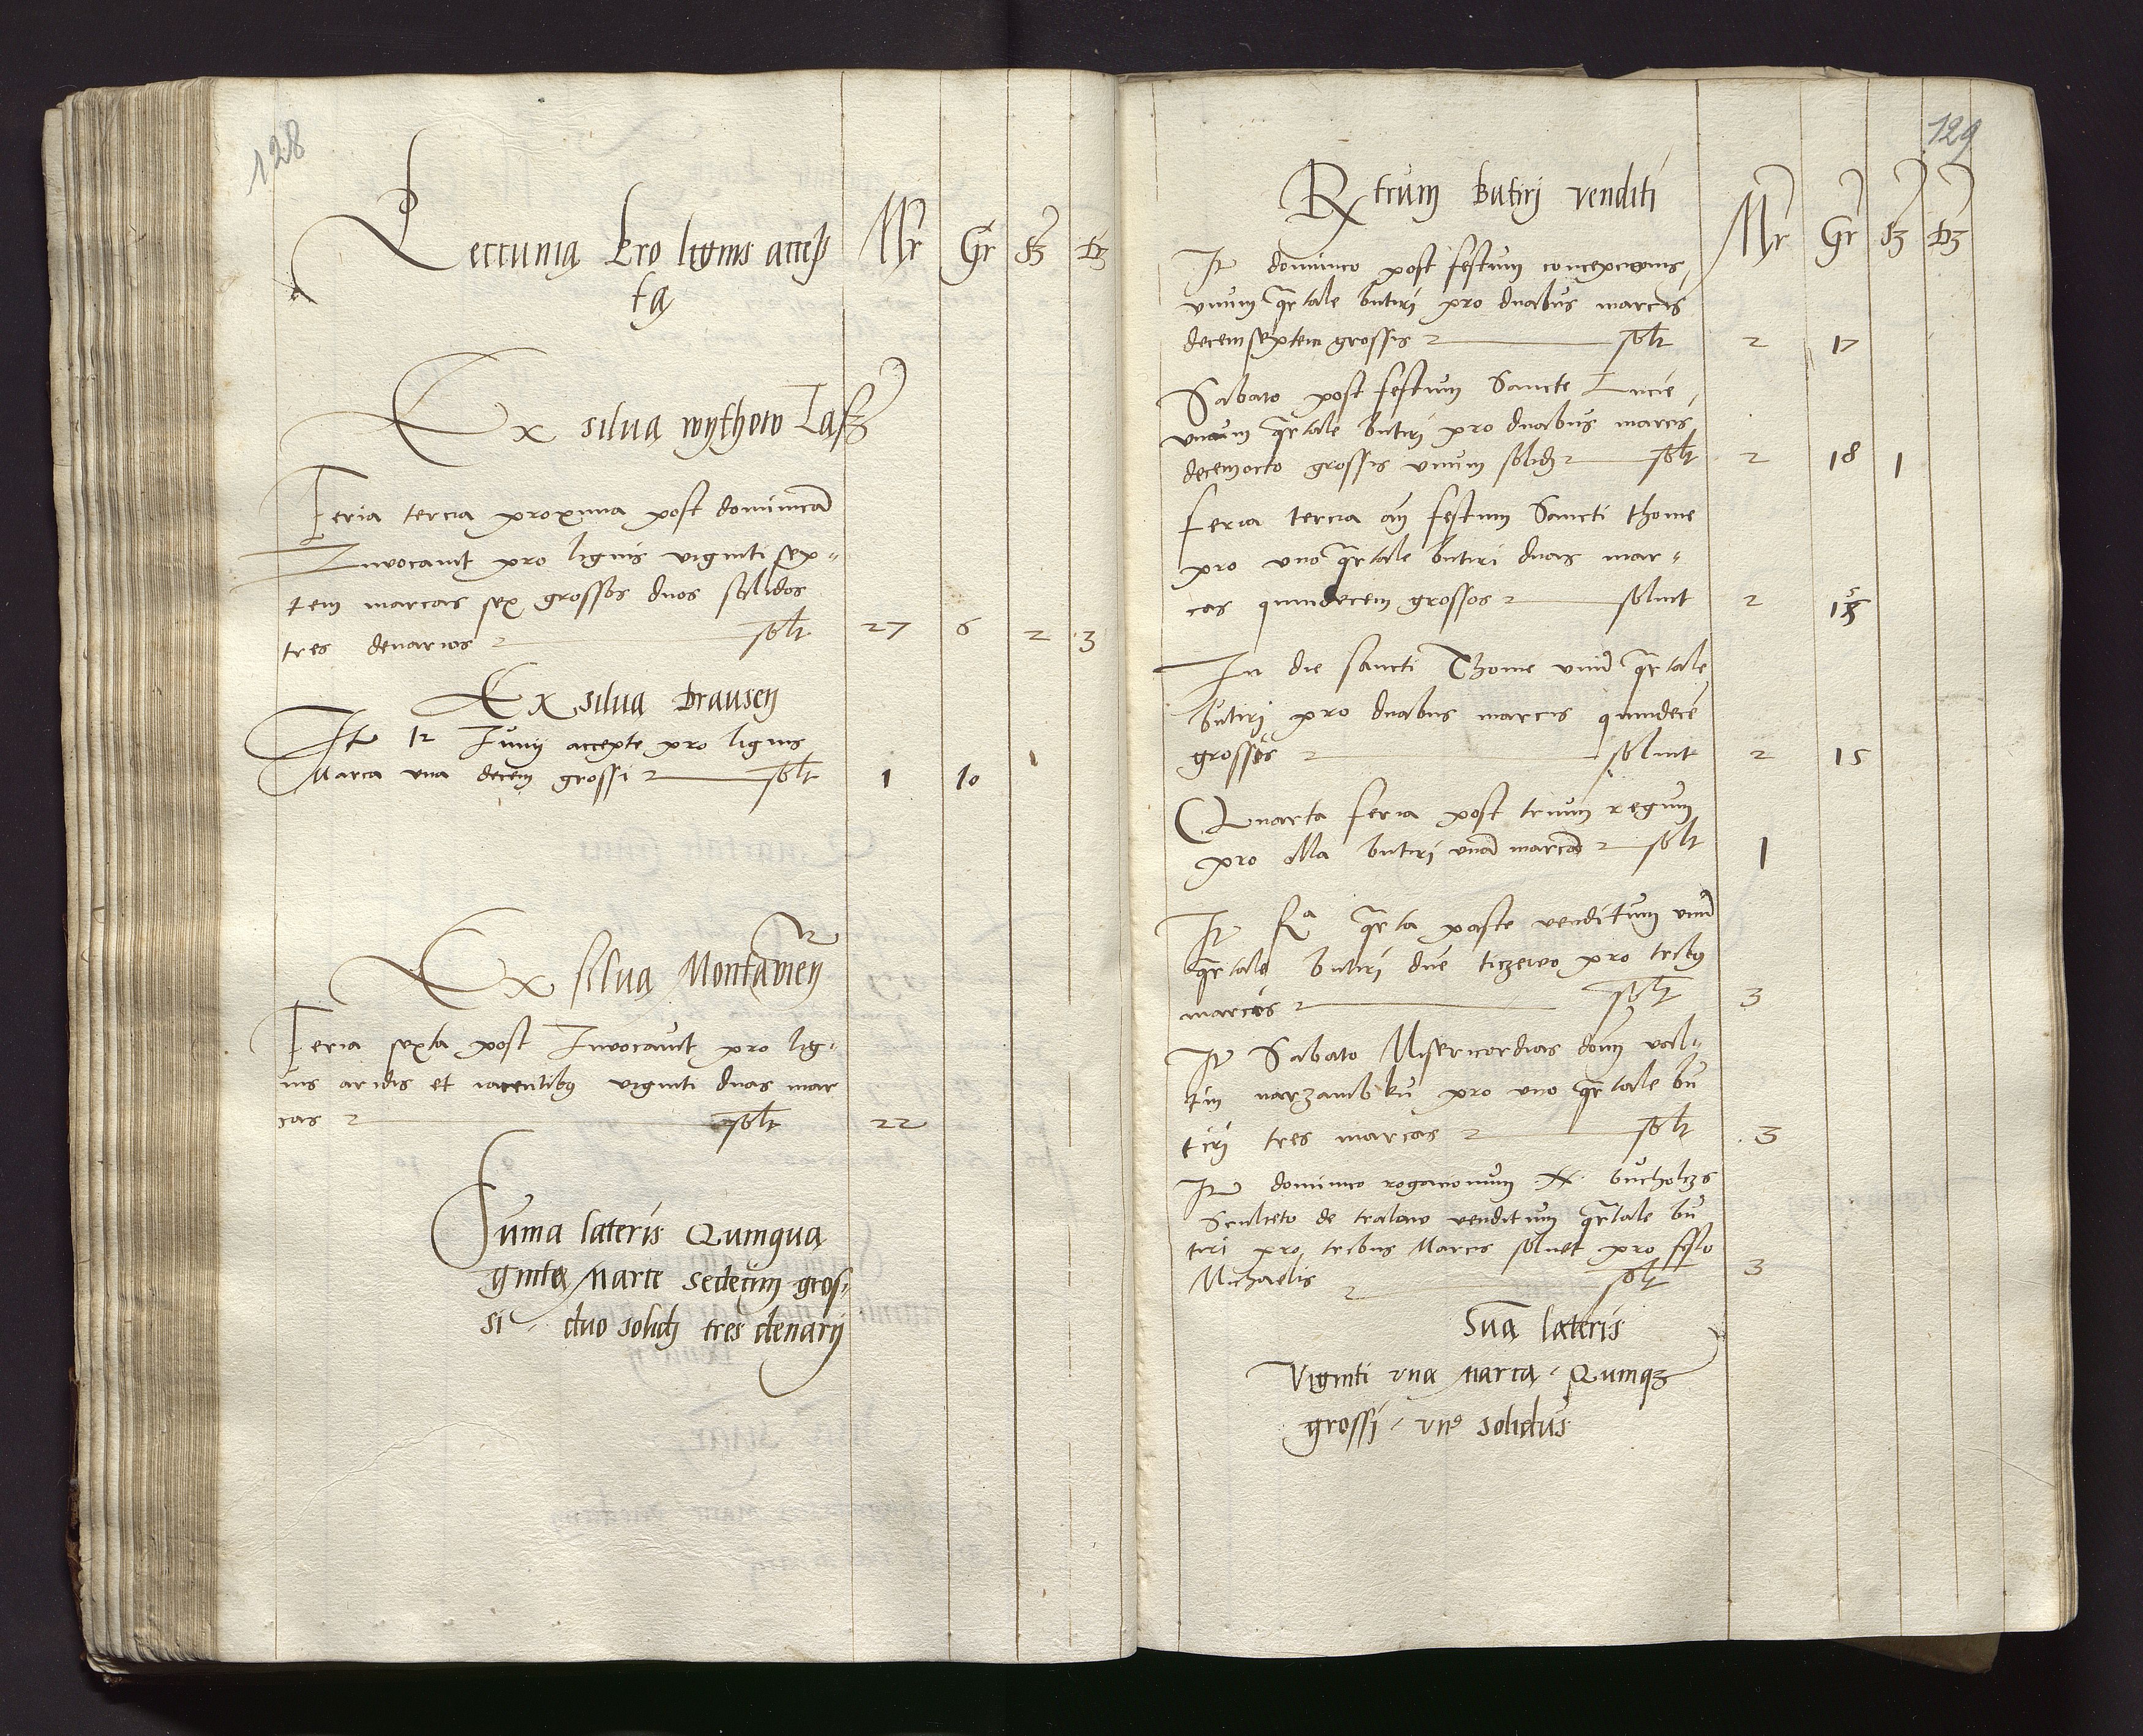 128
Peccunia pro lignis accep
ta
Mr Gr ß d
Ex silva wythow Lasz
Feria tercia proxima post dominicam
Invocavit pro lignis viginti sep-
tem marcas sex grossos duos solidos
tres denarios solt 27 6 2 3
Ex silva Drausen
It 12 Junij accepte pro lignis
Marca una decem grossi solt 1 10
Ex silva Montawien
Feria sexta post Invocavit pro lig-
nis aridis et iacentibus viginti duas mar
cas solt 22
Suma lateris Quinqua
ginta Marce sedecim gros-
si duo solidi tres denarij
129
trum butiri venditi
Mr Gr ß d
It dominico post festum concepcionis
unum qrtale butiri pro duabus marcis
decemseptem grossis solt 2 17
Sabato post festum Sancte Lucie
unum qrtale butiri pro duabus marcis
decemocto grossis unum solid solt 2 18 1
feria tercia an festum Sancti thome
pro uno qrtale butiri duas mar-
cas quindecem grossos solvit 2 15
In die sancti Thome unum qrtale
butiri pro duabus marcis quindece
grossos solvit 2 15
Quarta feria post trium regum
pro olla butiri una marca solt 1
It qrta paste venditum unum
qrtale butiri dne ticzewo pro tribus
marcis solt 3
It Sabato Misericordias domi val-
tin narzambku pro uno qrtale bu
tiri tres marcas solt 3
It dominico rogacionum bucholtz
Sculteto de tralaw venditum qrtale bu
tiri pro tribus Marcis solvet pro festo
Michaelis solt 3
Sua lateris
Viginti una Marca Quinqz
grossi un9 solidus